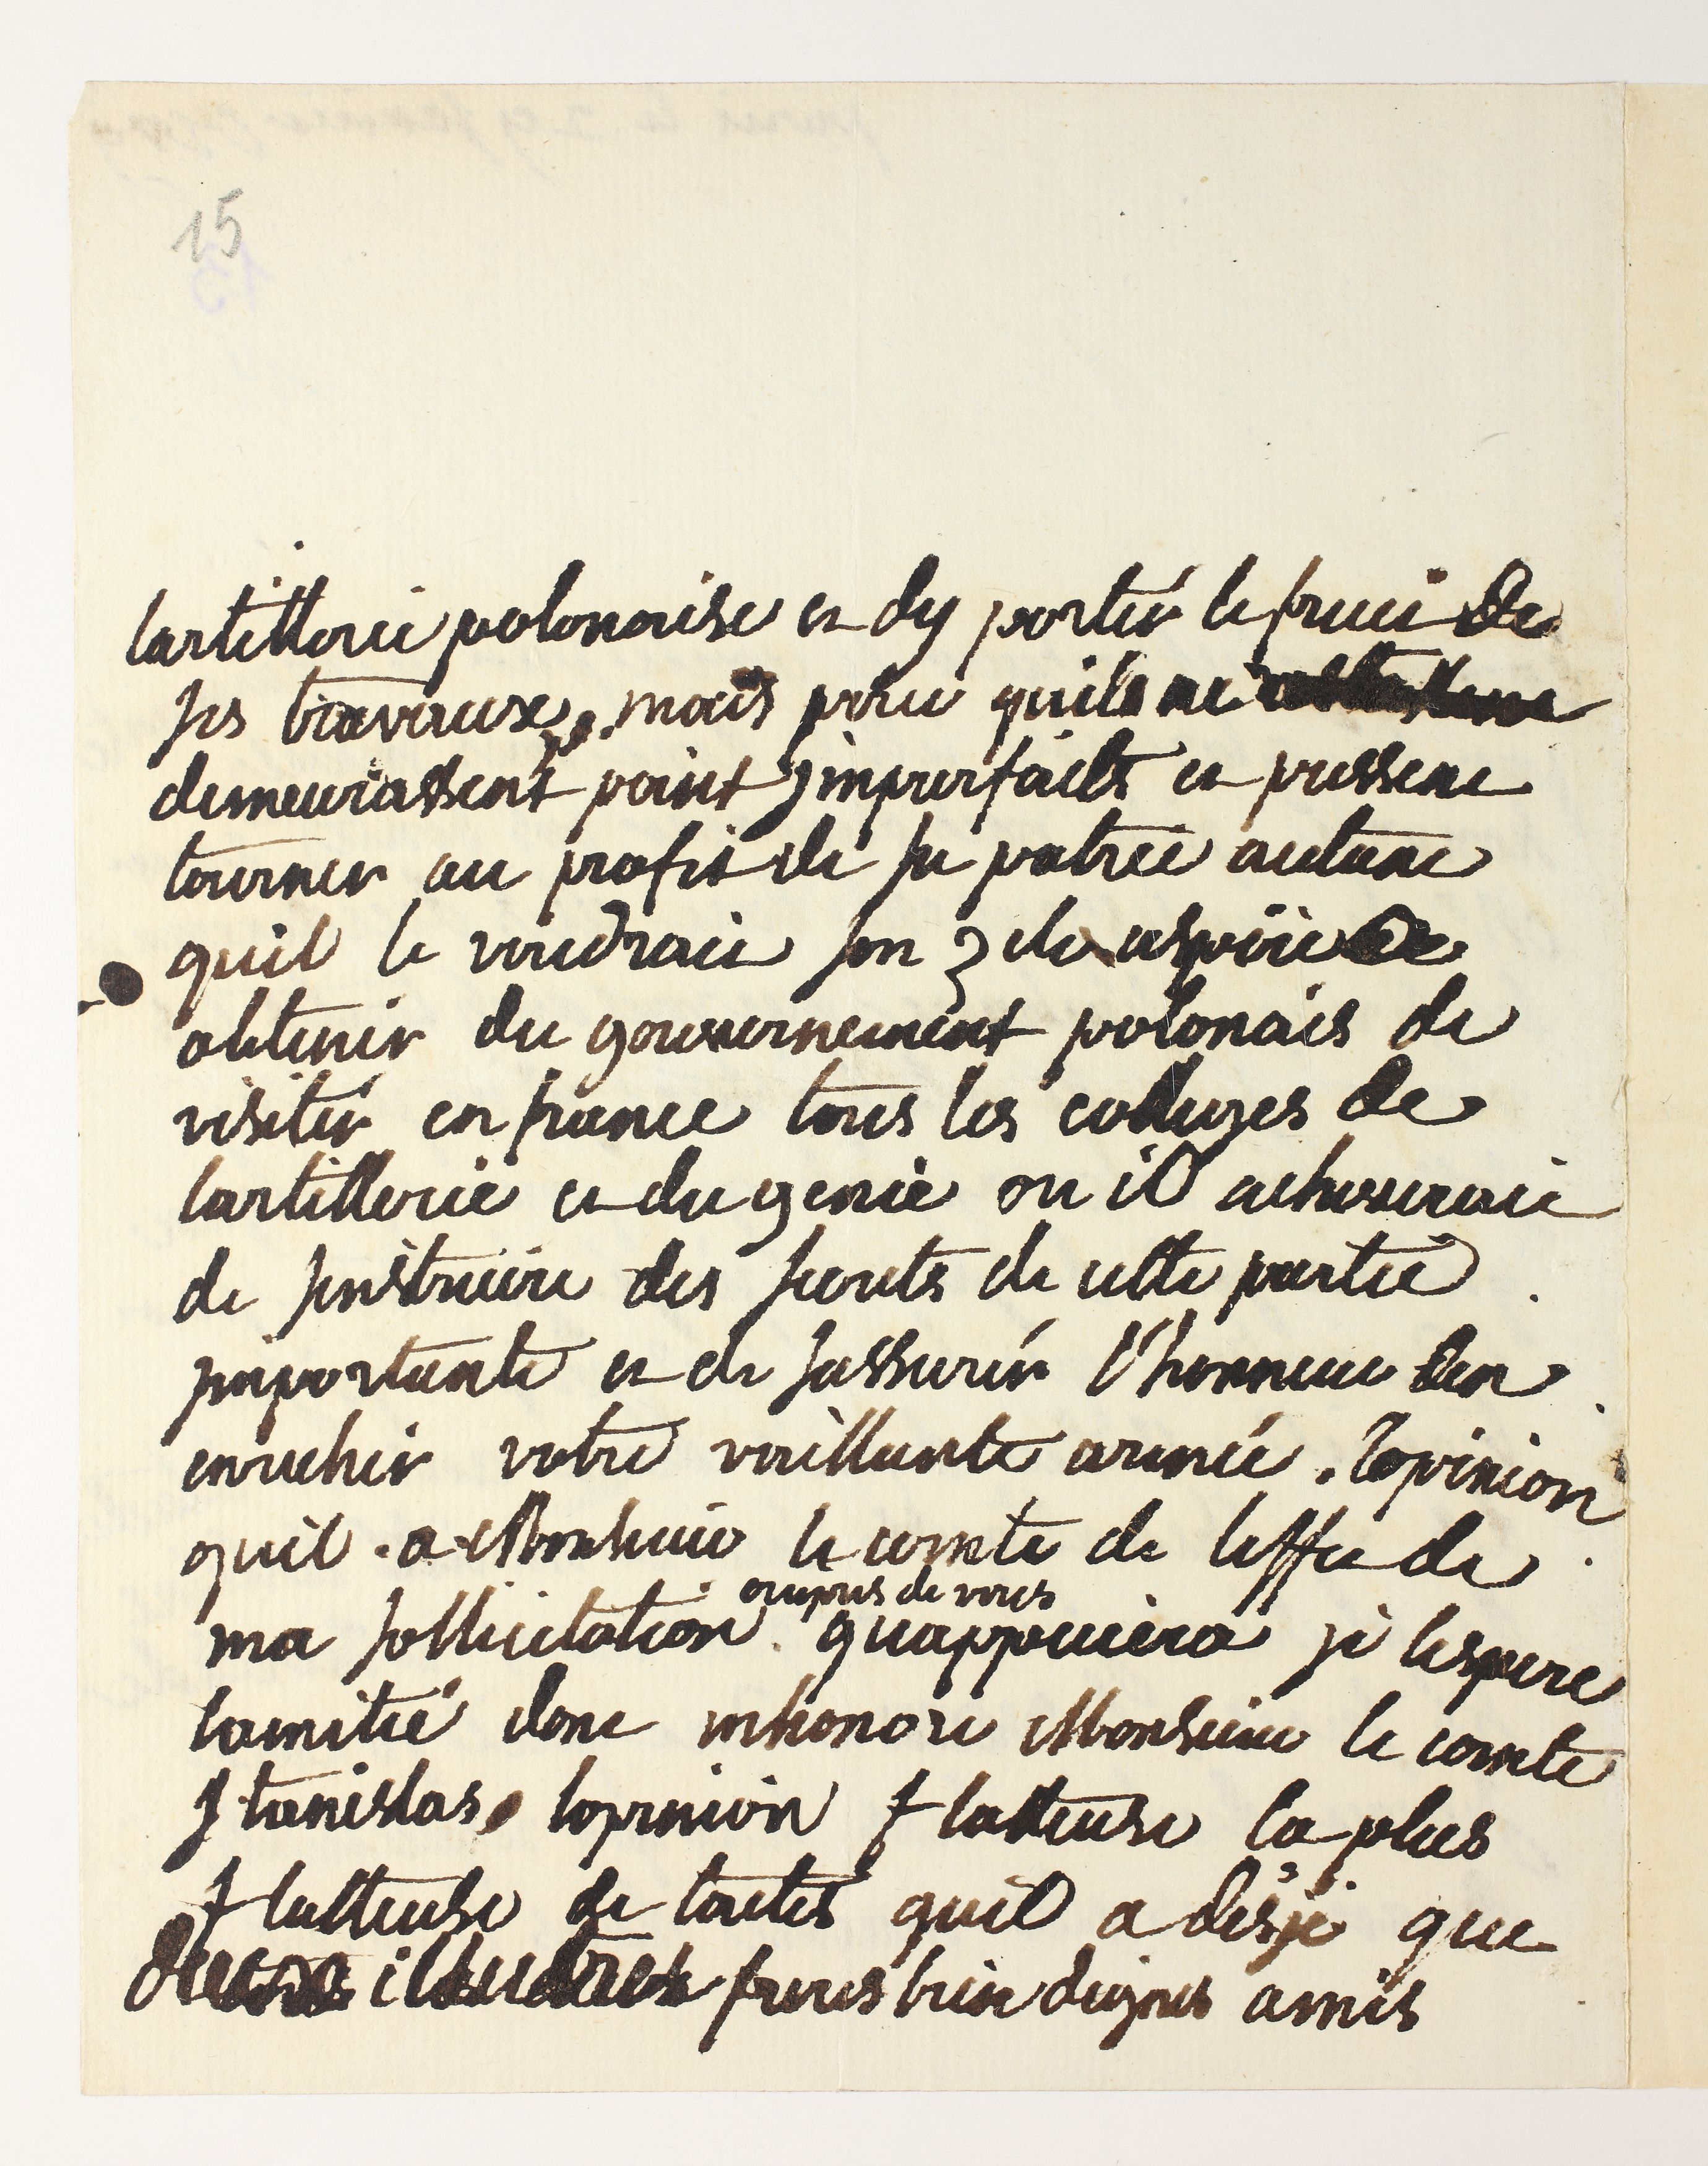 15
lartillerie polonaise et dy porter le fruit de
ses travaux. mais pour quils ne
demeurassent point jmparfaits et pussent
tourner au profit de sa patrie autant
quil le voudrait son zele aspire de
obtenir du gouvernement polonais de
visiter en france tous les colleges de
lartillerie et du genie ou il acheverait
de sinstruire des secrets de cette partie
jmportante et de sassurer l'honneur den
enrichir votre vaillante armée. lopinion
quil a Monsieur le comte de leffet de
ma sollicitation aupres de vous quappuiera je lespere
lamitié dont mhonore Monsieur le comte
Stanislas. lopinion flatteuse la plus
flatteuse de toutes quil a desja que
deux illustres freres bien dignes amis